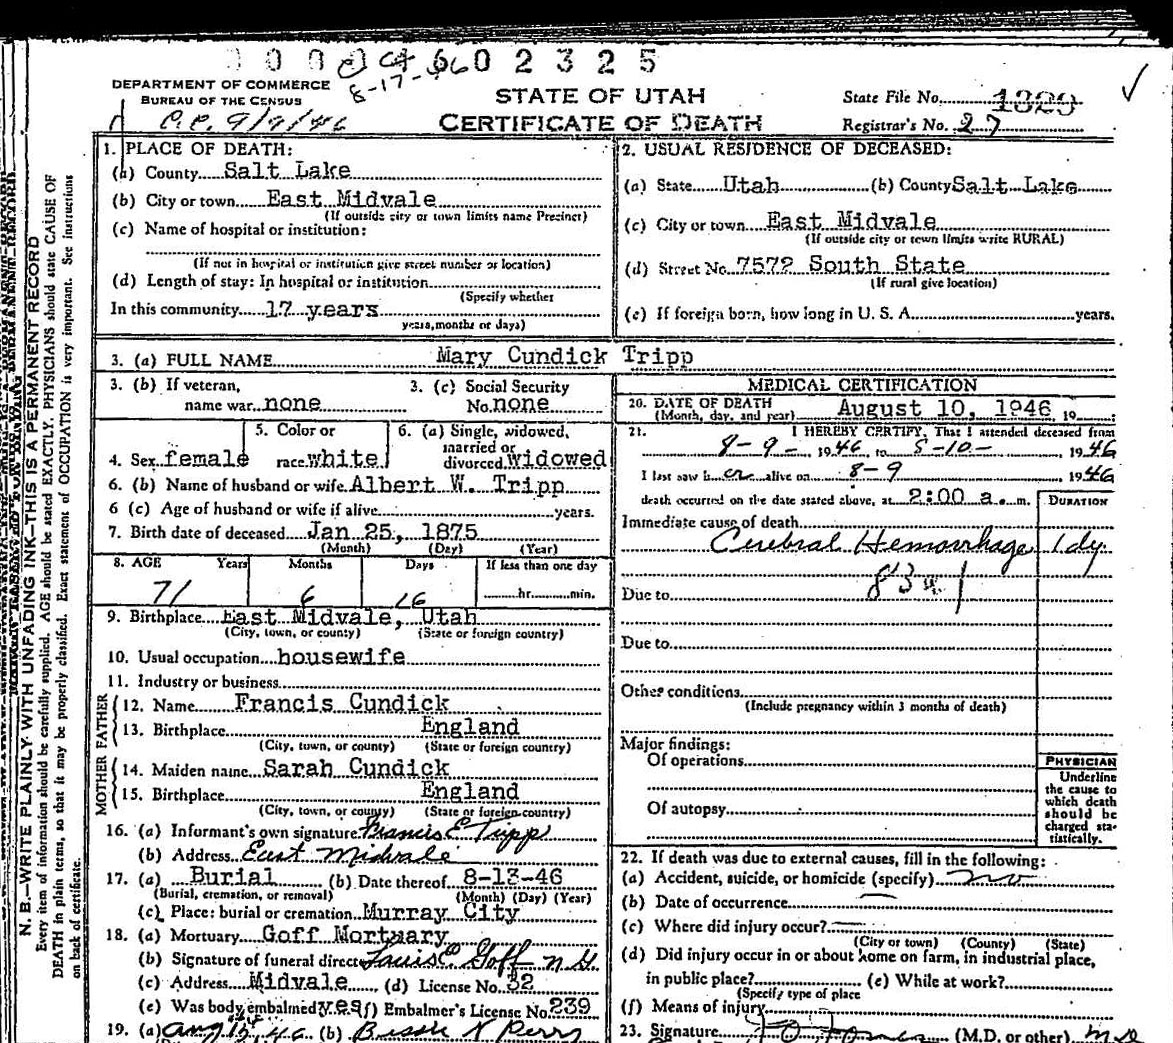 0 0 0 6 0 2 3 2 5
8-17-46
DEPARTMENT OF COMMERCE
BUREAU OF THE CENSUS
STATE OF UTAH
CERTIFICATE OF DEATH
State File No. 1329
Registrar's No. 27
9/9/46
N. B.—WRITE PLAINLY WITH UNFADING INK—THIS IS A PERMANENT RECORD
Every item of information should be carefully supplied. AGE should be stated EXACTLY. PHYSICIANS should state CAUSE OF
DEATH in plain terms, so that it may be properly classified. Exact statement of OCCUPATION is very important. See instructions
on back of certificate.
1. PLACE OF DEATH:
(a) County Salt Lake
(b) City or town East Midvale
(If outside city or town limits name Precinct)
(c) Name of hospital or institution:
(If not in hospital or institution give street number or location)
(d) Length of stay: In hospital or institution
(Specify whether
In this community 17 years
years, months or days)
2. USUAL RESIDENCE OF DECEASED:
(a) State Utah (b) County Salt Lake
(c) City or town East Midvale
(If outside city or town limits write RURAL)
(d) Street No. 7572 South State
(If rural give location)
(e) If foreign born, how long in U. S. A. years.
3. (a) FULL NAME Mary Cundick Tripp
3. (b) If veteran,
name war none
3. (c) Social Security
No. none
4. Sex female
5. Color or
race white
6. (a) Single, widowed,
married or
divorced widowed
6. (b) Name of husband or wife Albert W. Tripp
6 (c) Age of husband or wife if alive years.
7. Birth date of deceased Jan 25, 1875
(Month) (Day) (Year)
8. AGE Years Months Days If less than one day
71 6 16 hr. min.
9. Birthplace East Midvale, Utah
(City, town, or county) (State or foreign country)
10. Usual occupation housewife
11. Industry or business
FATHER
12. Name Francis Cundick
13. Birthplace England
(City, town, or county) (State or foreign country)
MOTHER
14. Maiden name Sarah Cundick
15. Birthplace England
(City, town, or county) (State or foreign country)
16. (a) Informant's own signature Francis E Tripp
(b) Address East Midvale
17. (a) Burial (b) Date thereof 8-13-46
(Burial, cremation, or removal) (Month) (Day) (Year)
(c) Place: burial or cremation Murray City
18. (a) Mortuary Goff Mortuary
(b) Signature of funeral director Louis E. Goff
(c) Address Midvale (d) License No. 32
(e) Was body embalmed yes (f) Embalmer's License No. 239
19. (a) Aug 15 46 (b) Bessie N Perry
MEDICAL CERTIFICATION
20. DATE OF DEATH
(Month, day, and year) August 10, 1946 19
21. I HEREBY CERTIFY, That I attended deceased from
8-9- 1946 to 8-10- 1946
I last saw her alive on 8-9 1946
death occurred on the date stated above, at 2:00 a.m.
DURATION
Immediate cause of death
Cerebral Hemorrhage 1 dy.
Due to
Due to
Other conditions
(Include pregnancy within 3 months of death)
Major findings:
Of operations
Of autopsy
PHYSICIAN
Underline
the cause to
which death
should be
charged sta-
tistically.
22. If death was due to external causes, fill in the following:
(a) Accident, suicide, or homicide (specify) no
(b) Date of occurrence
(c) Where did injury occur?
(City or town) (County) (State)
(d) Did injury occur in or about home on farm, in industrial place,
in public place? (e) While at work?
(Specify type of place
(f) Means of injury
23. Signature (M.D. or other) M D